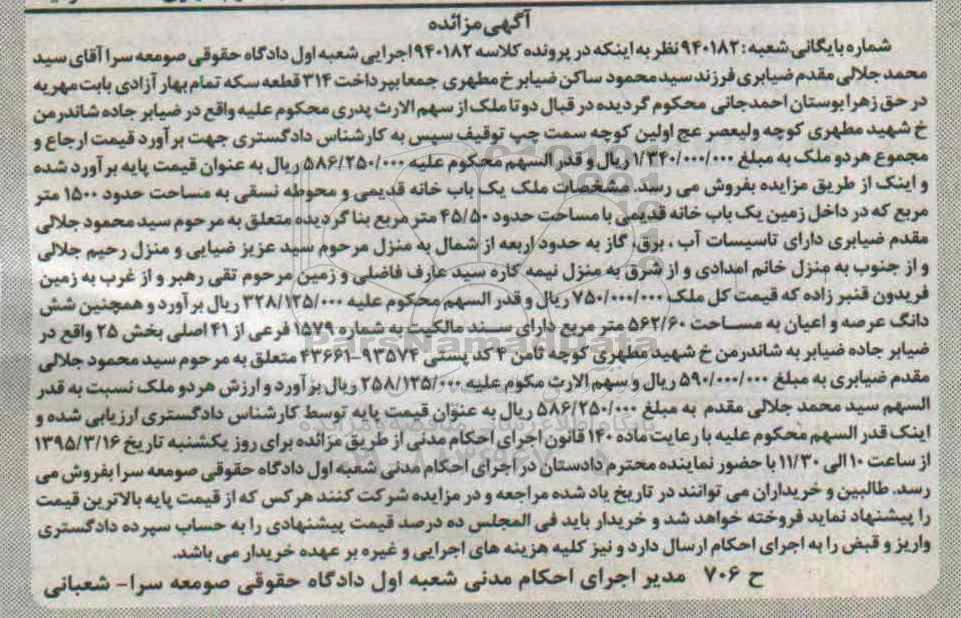 آگهی مزائده
شماره بایگانی شعبه: ۹۴۰۱۸۲ نظر به اینکه در پرونده کلاسه ۹۴۰۱۸۲ اجرایی شعبه اول دادگاه حقوقی صومعه سرا آقای سید
محمد جلالی مقدم ضیابری فرزند سید محمود ساکن ضیابر خ مطهری جمعا بپرداخت ۳۱۴ قطعه سکه تمام بهار آزادی بابت مهریه
در حق زهرا بوستان احمدجانی محکوم گردیده در قبال دو تا ملک از سهم الارث پدری محکوم علیه واقع در ضیابر جاده شاندرمن
خ شهید مطهری کوچه ولیعصر عج اولین کوچه سمت چپ توقیف سپس به کارشناس دادگستری جهت برآورد قیمت ارجاع و
مجموع هر دو ملک به مبلغ ۱/۳۴۰/۰۰۰/۰۰۰ ریال و قدر السهم محکوم علیه ۵۸۶/۲۵۰/۰۰۰ ریال به عنوان قیمت پایه برآورد شده
و اینک از طریق مزایده بفروش می رسد. مشخصات ملک یک باب خانه قدیمی و محوطه نسقی به مساحت حدود ۱۵۰۰ متر
مربع که در داخل زمین یک باب خانه قدیمی با مساحت حدود ۴۵/۵۰ متر مربع بنا گردیده متعلق به مرحوم سید محمود جلالی
مقدم ضیابری دارای تاسیسات آب ، برق، گاز به حدود اربعه از شمال به منزل مرحوم سید عزیز ضیایی و منزل رحیم جلالی
و از جنوب به منزل خانم امدادی و از شرق به منزل نیمه کاره سید عارف فاضلی و زمین مرحوم تقی رهبر و از غرب به زمین
فریدون قنبر زاده که قیمت کل ملک ۷۵۰/۰۰۰/۰۰۰ ریال و قدر السهم محکوم علیه ۳۲۸/۱۲۵/۰۰۰ ریال برآورد و همچنین شش
دانگ عرصه و اعیان به مساحت ۵۶۲/۶۰ متر مربع دارای سند مالکیت به شماره ۱۵۷۹ فرعی از ۴۱ اصلی بخش ۲۵ واقع در
ضیابر جاده ضیابر به شاندرمن خ شهید مطهری کوچه ثامن ۴ کد پستی ۹۳۵۷۴-۴۳۶۶۱ متعلق به مرحوم سید محمود جلالی
مقدم ضیابری به مبلغ ۵۹۰/۰۰۰/۰۰۰ ریال و سهم الارث مکوم علیه ۲۵۸/۱۲۵/۰۰۰ ریال برآورد و ارزش هر دو ملک نسبت به قدر
السهم سید محمد جلالی مقدم به مبلغ ۵۸۶/۲۵۰/۰۰۰ ریال به عنوان قیمت پایه توسط کارشناس دادگستری ارزیابی شده و
اینک قدر السهم محکوم علیه با رعایت ماده ۱۴۰ قانون اجرای احکام مدنی از طریق مزائده برای روز یکشنبه تاریخ ۱۳۹۵/۳/۱۶
از ساعت ۱۰ الی ۱۱/۳۰ با حضور نماینده محترم دادستان در اجرای احکام مدنی شعبه اول دادگاه حقوقی صومعه سرا بفروش می
رسد. طالبین و خریداران می توانند در تاریخ یاد شده مراجعه و در مزایده شرکت کنند هر کس که از قیمت پایه بالاترین قیمت
را پیشنهاد نماید فروخته خواهد شد و خریدار باید فی المجلس ده درصد قیمت پیشنهادی را به حساب سپرده دادگستری
واریز و قبض را به اجرای احکام ارسال دارد و نیز کلیه هزینه های اجرایی و غیره بر عهده خریدار می باشد.
ح ۷۰۶ مدیر اجرای احکام مدنی شعبه اول دادگاه حقوقی صومعه سرا- شعبانی
ParsNamadData